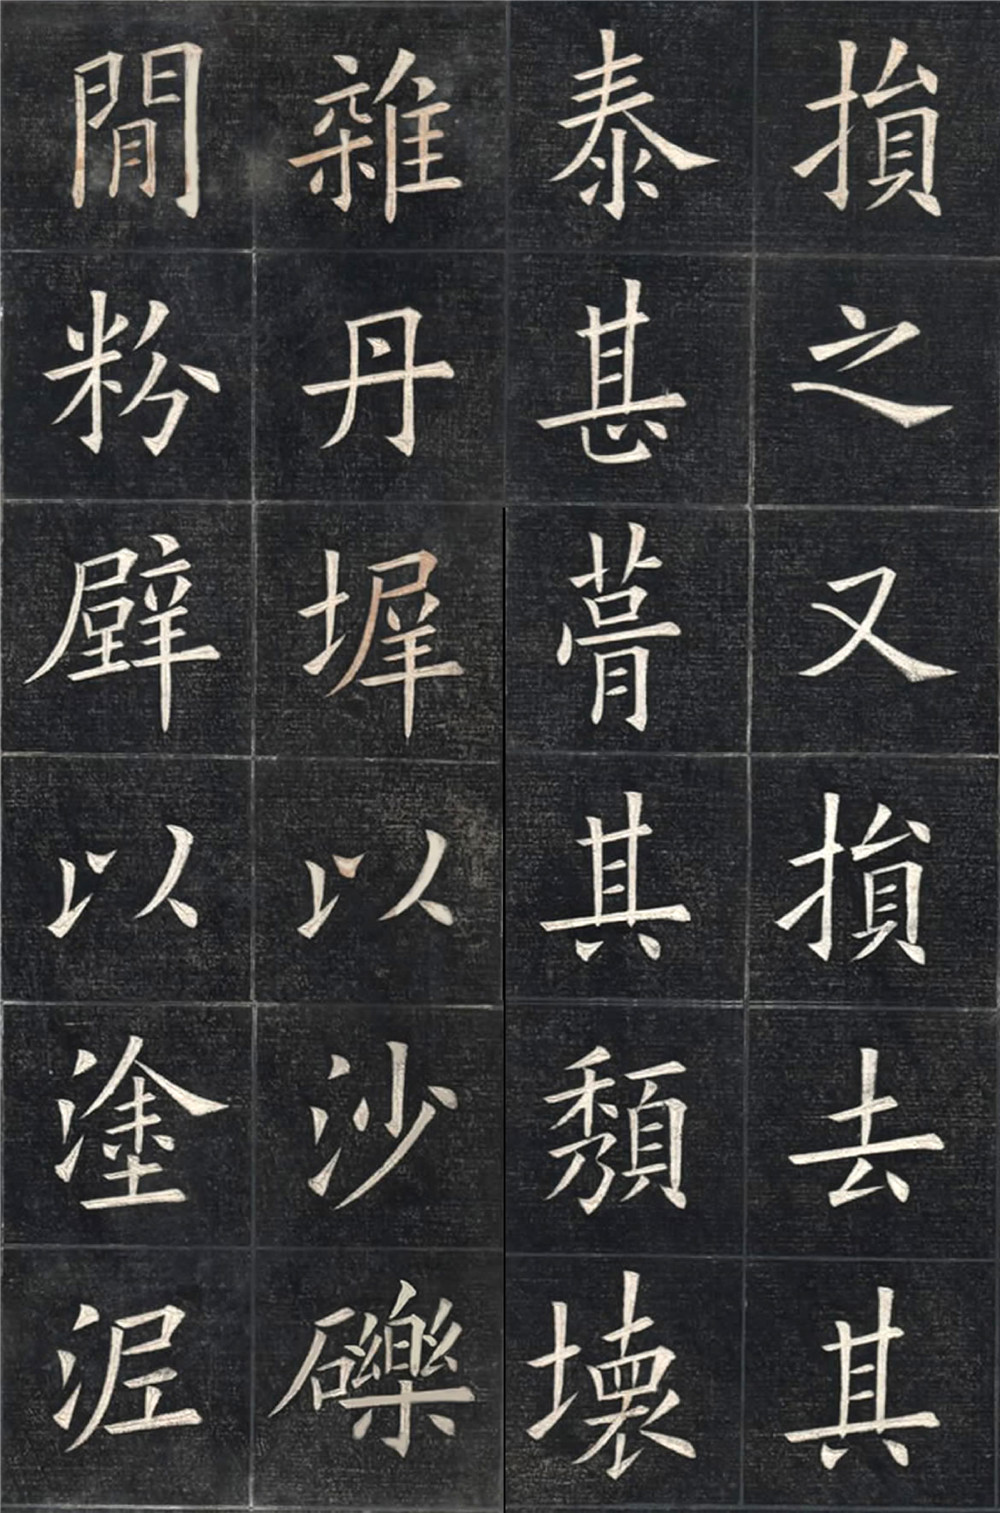 損之又損去其
泰甚葺其頹壞
雜丹墀以沙礫
閒粉壁以塗泥